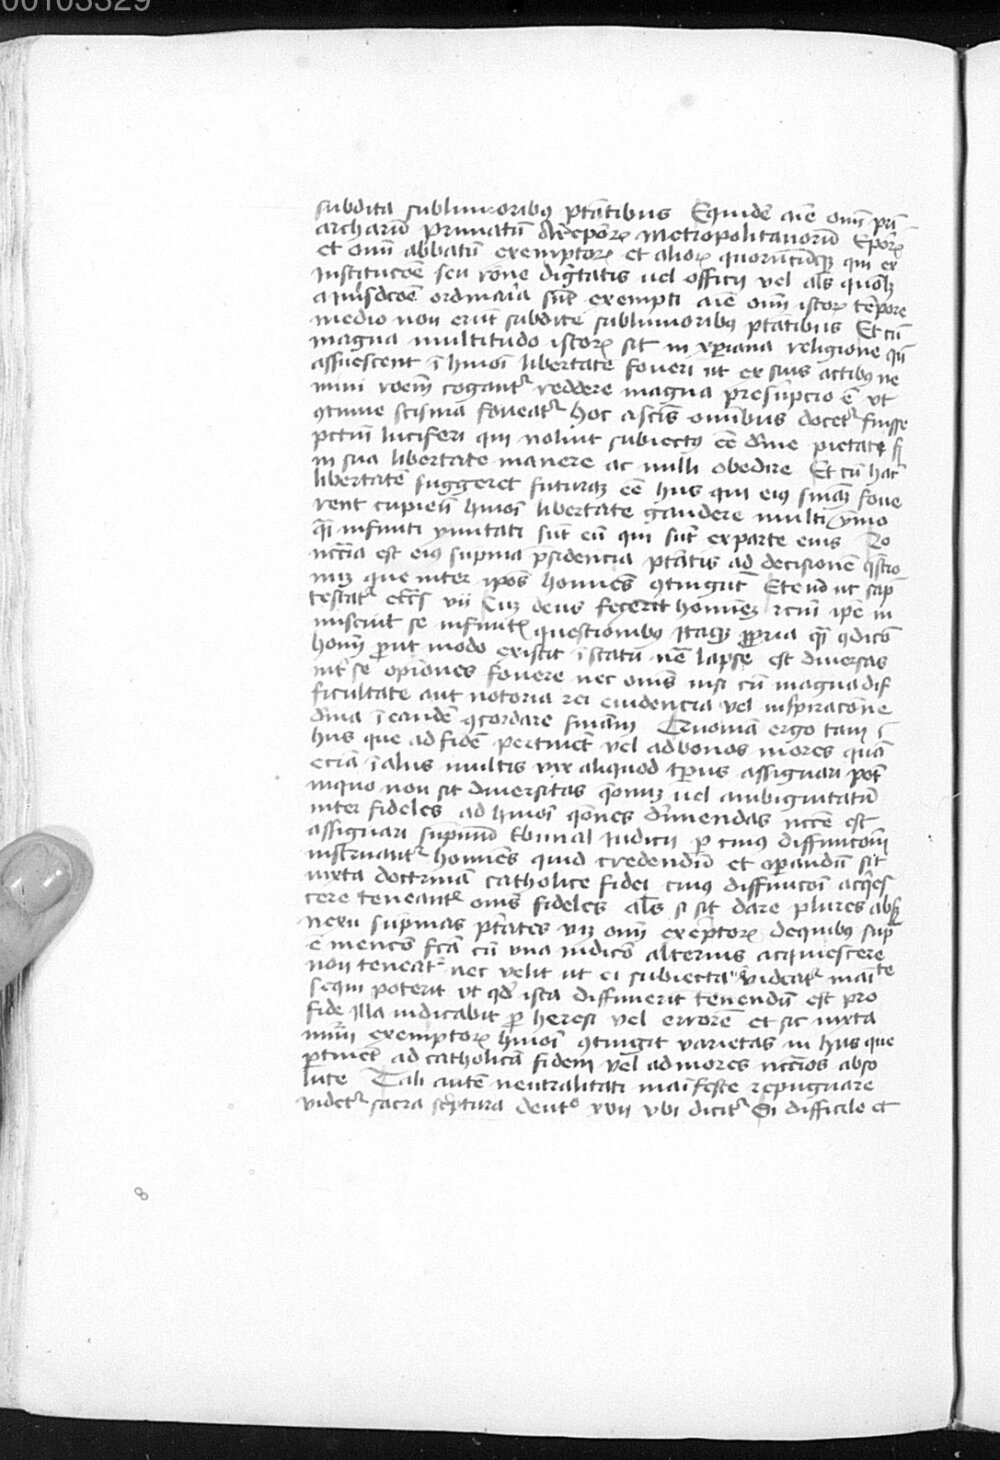 00103329
subdita sublimioribus ptātibus Equidē aīe oīm pri
archarū primatū Archiepōrꝝ Metropolitanorū Epōrꝝ
et oīm abbatū exemptorꝝ et aliorꝝ quorūcūqꝫ qui ex
institucōe seu rōne dignitatis uel officij vel als quouis
a iurisdcōe ordinaria sūt exempti aīe oīm istorꝝ tēpore
medio non erūt subdite sublimioribus ptātibus Et cū
magna multitudo istorꝝ sit in xpiana religione qui
assuescent ī hmōi libertate foueri ut ex suis actibus ne
mini rōem cogantur reddere magna presūpcio ē vt
ꝯtinue scisma foueatur hoc a scīs omībus docetur fuisse
pctm̄ luciferi qui noluit subiectus eē diuine pietati sꝫ
in sua libertate manere ac nulli obedire Et cū hāc
libertatē suggeret futurā eē hijs qui eius sniāꝫ foue
rent cupien hmōi libertate gaudere multi ymo
qꝫ infiniti ymitati sūt eū qui sūt ex parte eius Ro
nccīa est eius suprema presidencia ptātis ad decisionē qstio
nuꝫ que inter ipos homines ꝯtingūt Etenī ut sap
testatur eccīs vij Cuꝫ deus fecerit hominēꝫ rcm̄ ipe in
miscuit se infinitis questionibus Itaqꝫ propria qꝫ ꝯdicō
homīs prout modo existit ī statu nē lapse est diuersas
inter se opiniones fouere nec oms nisi cū magna dif
ficultate aut notoria rei euidencia vel inspiracōne
diuina ī eandē ꝯcordare sniām Quoniā ergo tam ī
hijs que ad fidē pertinēt vel ad bonos mores quā
eciā ī alijs multis vix aliquod tpus assignari pot
in quo non sit diuersitas qōnuꝫ uel ambiguitatū
inter fideles ad hmōi qōnes dirimendas nccē est
assignari supremū tbunal Iudicij per cuius diffinicōm
instruantur homīes quid credendū et operandū sit
iuxta doctrinā catholice fidei cuius diffinicōi acqies
cere teneantur omīs fideles als si sit dare plures absqꝫ
nexu supremas ptātes viꝫ oīm exēptorꝝ de quibus sup
ē mencō fcā cū vna iudicio alterius acquiescere
non teneatur nec velit ut ei subiecta videatur maīte
sequi poterit vt qd ista diffinierit tenendū est pro
fide Illa iudicabit pro heresi vel errorē et sic iuxta
nūm exemptorꝝ hmōi ꝯtingit varietas in hijs que
pertinēt ad catholicā fidem vel ad mores nccīos abso
lute Tali autē neutralitati maīfeste repugnare
videtur sacra scptura deuto xvij vbi dicitur Si difficile et
8